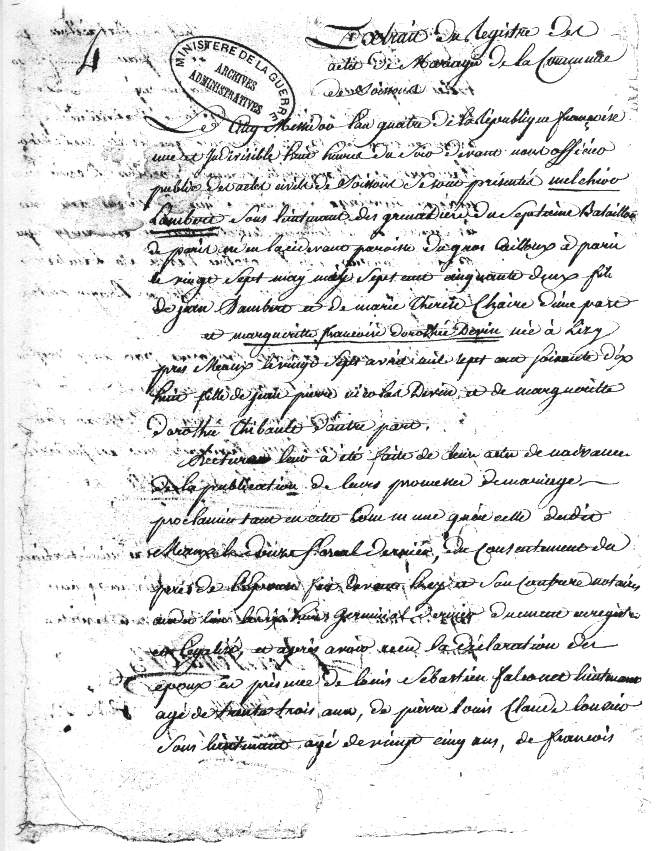 4
MINISTERE DE LA GUERRE
ARCHIVES
ADMINISTRATIVES
Extrait du Registre des
actes de Mariage de la Commune
de Soissons
Le Cinq Messidor l'an quatre de la République françoise
une et indivisible huit heures du soir devant nous officier
public des actes civils de Soissons se sont présentés melchior
Lambert sous lieutenant des grenadiers du Septieme Bataillon
de paris né en la cidevant paroisse du gros Cailloux à paris
le vingt Sept may mil Sept cent cinquante deux fils
de jean Lambert et de marie therese Claire d'une part
et marguerite francoise dorothé Devin née à Lizy
près Meaux le vingt Sept avril mil sept cent soixante dix
huit fille de jean pierre nicolas Devin, et de marguerite
dorothé Thibault d'autre part.
Lecture leur à été faite de leur acte de naissance
de la publication de leurs promesses de mariage
proclamée tant en cette Commune qu'en celle dudit
Meaux le douze floreal dernier, du Consentement du
père de l'épouse devant et Son Confrere notaires
Germinal dernier duement enregistré
et Légalisé, et après avoir recu la déclaration des
époux en présence de Louis Sébastien falconet lieutenant
agé de trente trois ans, de pierre Louis Claude
Sous lieutenant agé de vingt cinq ans, de françois